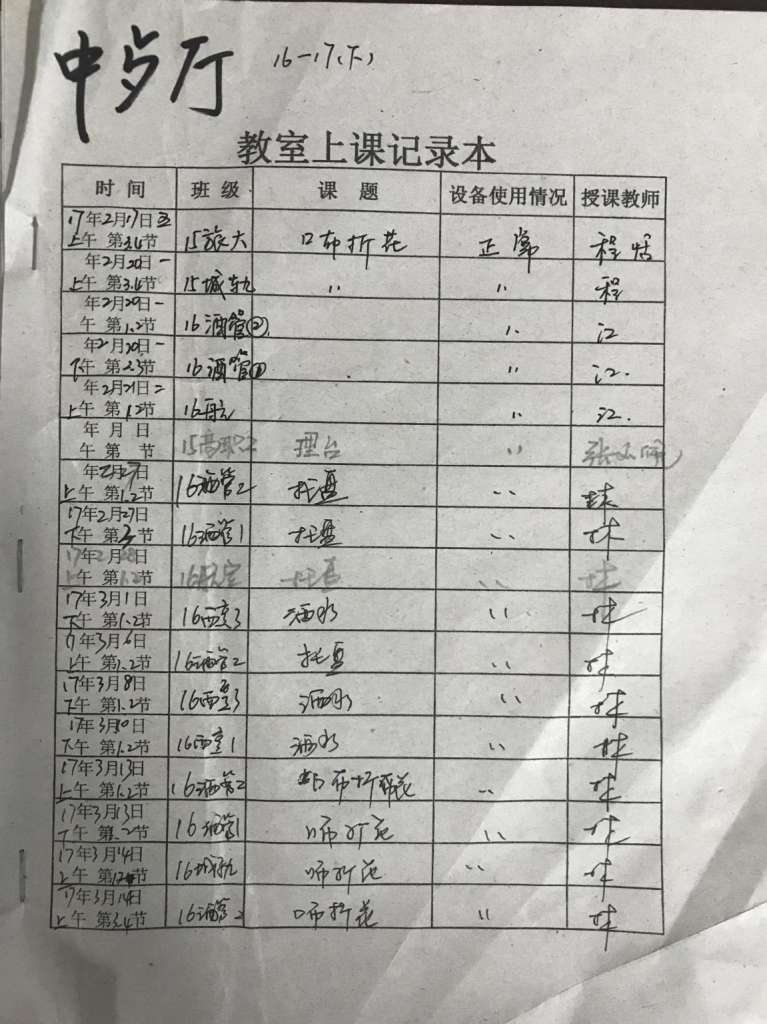 中 厅 16-17(下)
教室上课记录本
时间 班级 课题 设备使用情况 授课教师
17年2月17日 五
上午 第3.4节 15旅大 口布折花 正常 程恬
年2月20日 一
上午 第3.4节 15城轨 〃 〃 程
年2月20日 一
午 第1.2节 16酒管② 〃 江
年2月20日 一
下午 第2.3节 16酒管① 〃 江.
年2月21日 二
上午 第1.2节 16航 〃 江.
年 月 日
午 第 节 15高职 理台 〃 张
年2月27日
上午 第1.2节 16酒管2 托盘 〃
17年2月27日
下午 第 节 16酒管1 托盘 〃
17年2月28日
上午 第1.2节 16航空 托盘 〃
17年3月1日
下午 第1.2节 16西烹3 洒水 〃
17年3月6日
上午 第1.2节 16酒管2 托盘 〃
17年3月8日
下午 第1.2节 16西烹3 洒水 〃
17年3月10日
下午 第1.2节 16西烹1 洒水 〃
17年3月13日
上午 第1.2节 16酒管2 布折花 〃
17年3月13日
下午 第1.2节 16酒管1 口布折花 〃
17年3月14日
上午 第1.2节 16城轨 口布折花 〃
17年3月14日
上午 第3.4节 16酒管2 口布折花 〃